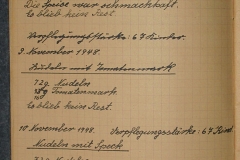 Die Speise war schmackhaft.
Es blieb kein Rest.
Verpflegungsstärke: 67 Kinder.
9. November 1948.
Nudeln mit Tomatenmark
72g Nudeln
18g Tomatenmark
Es blieb kein Rest.
10. November 1948. Verpflegungsstärke: 67 Kind.
Nudeln mit Speck
Nudeln